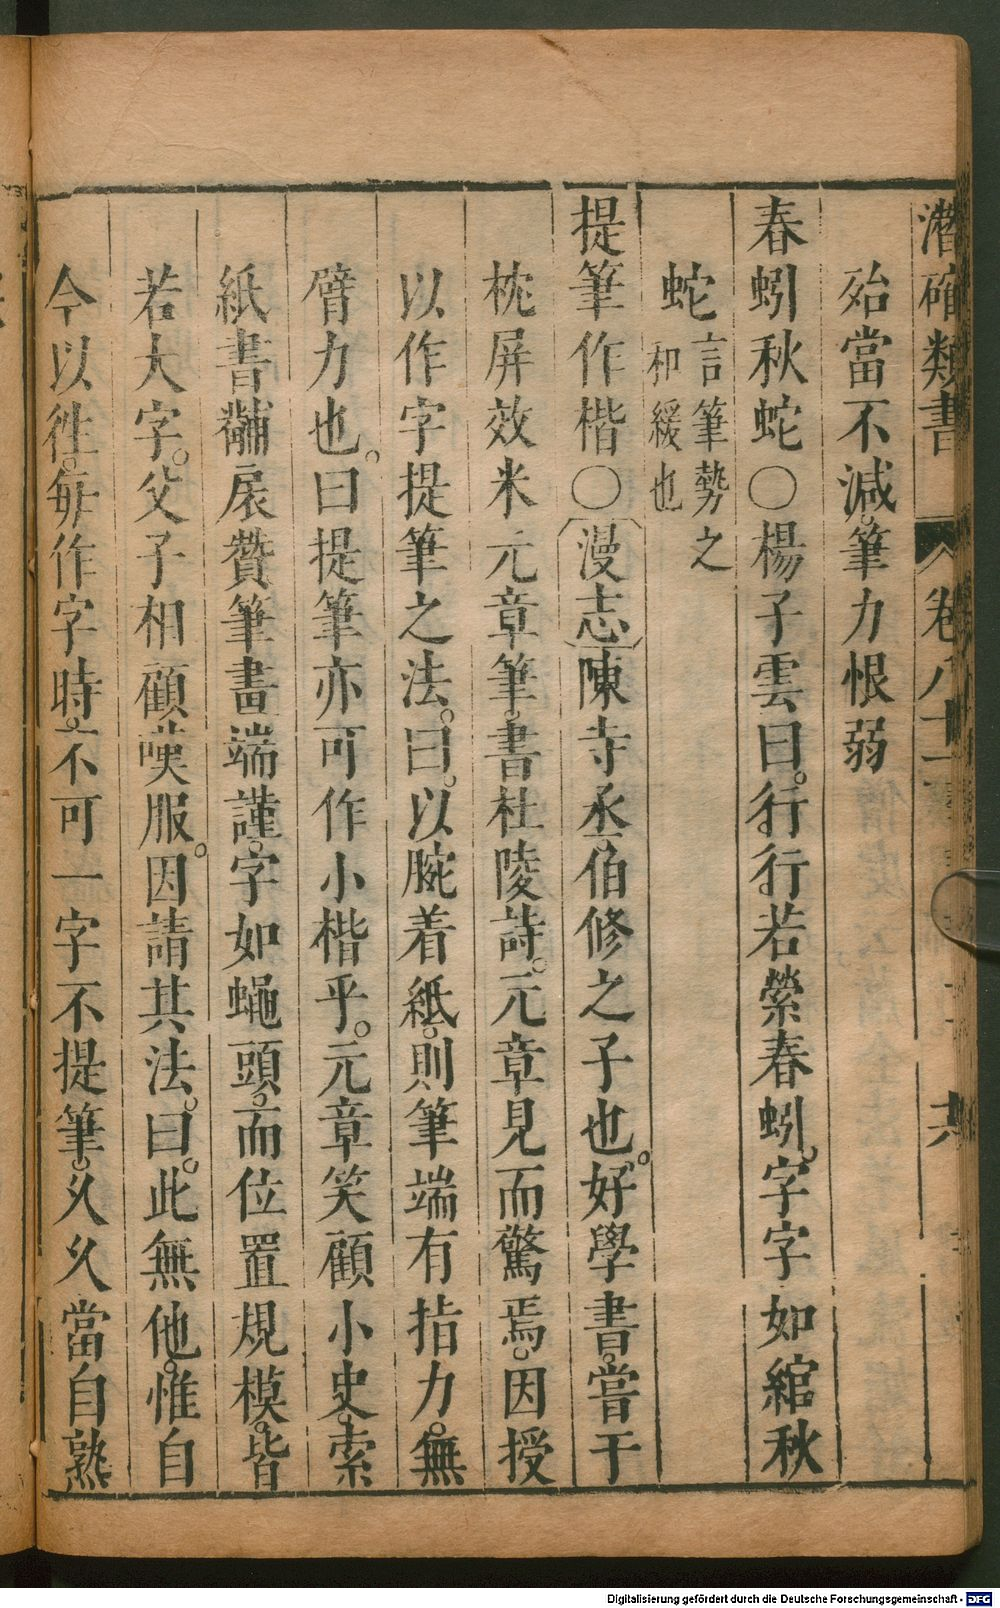 潛確類書 卷八十
殆當不減筆力恨弱
春蚓秋蛇○楊子雲曰。行行若縈春蚓。字字如綰秋
蛇言筆勢之和緩也
提筆作楷○漫志陳寺丞伯修之子也。好學書。嘗于
枕屏效米元章筆。書杜陵詩。元章見而驚焉。因授
以作字提筆之法。曰。以腕着紙。則筆端有指力。無
臂力也。曰提筆亦可作小楷乎。元章笑顧小史。索
紙書黼扆贊筆畫端謹。字如蠅頭。而位置規模。皆
若大字。父子相顧嘆服。因請其法。曰。此無他。惟自
今以徃。每作字時。不可一字不提筆。久久當自熟
Digitalisierung gefördert durch die Deutsche Forschungsgemeinschaft - DFG